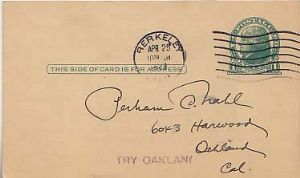 BERKELEY
APR 25
THIS SIDE OF CARD IS FOR ADDRESS
Perham C. Nahl
6043 Harwood
Oakland
Cal.
TRY OAKLAND